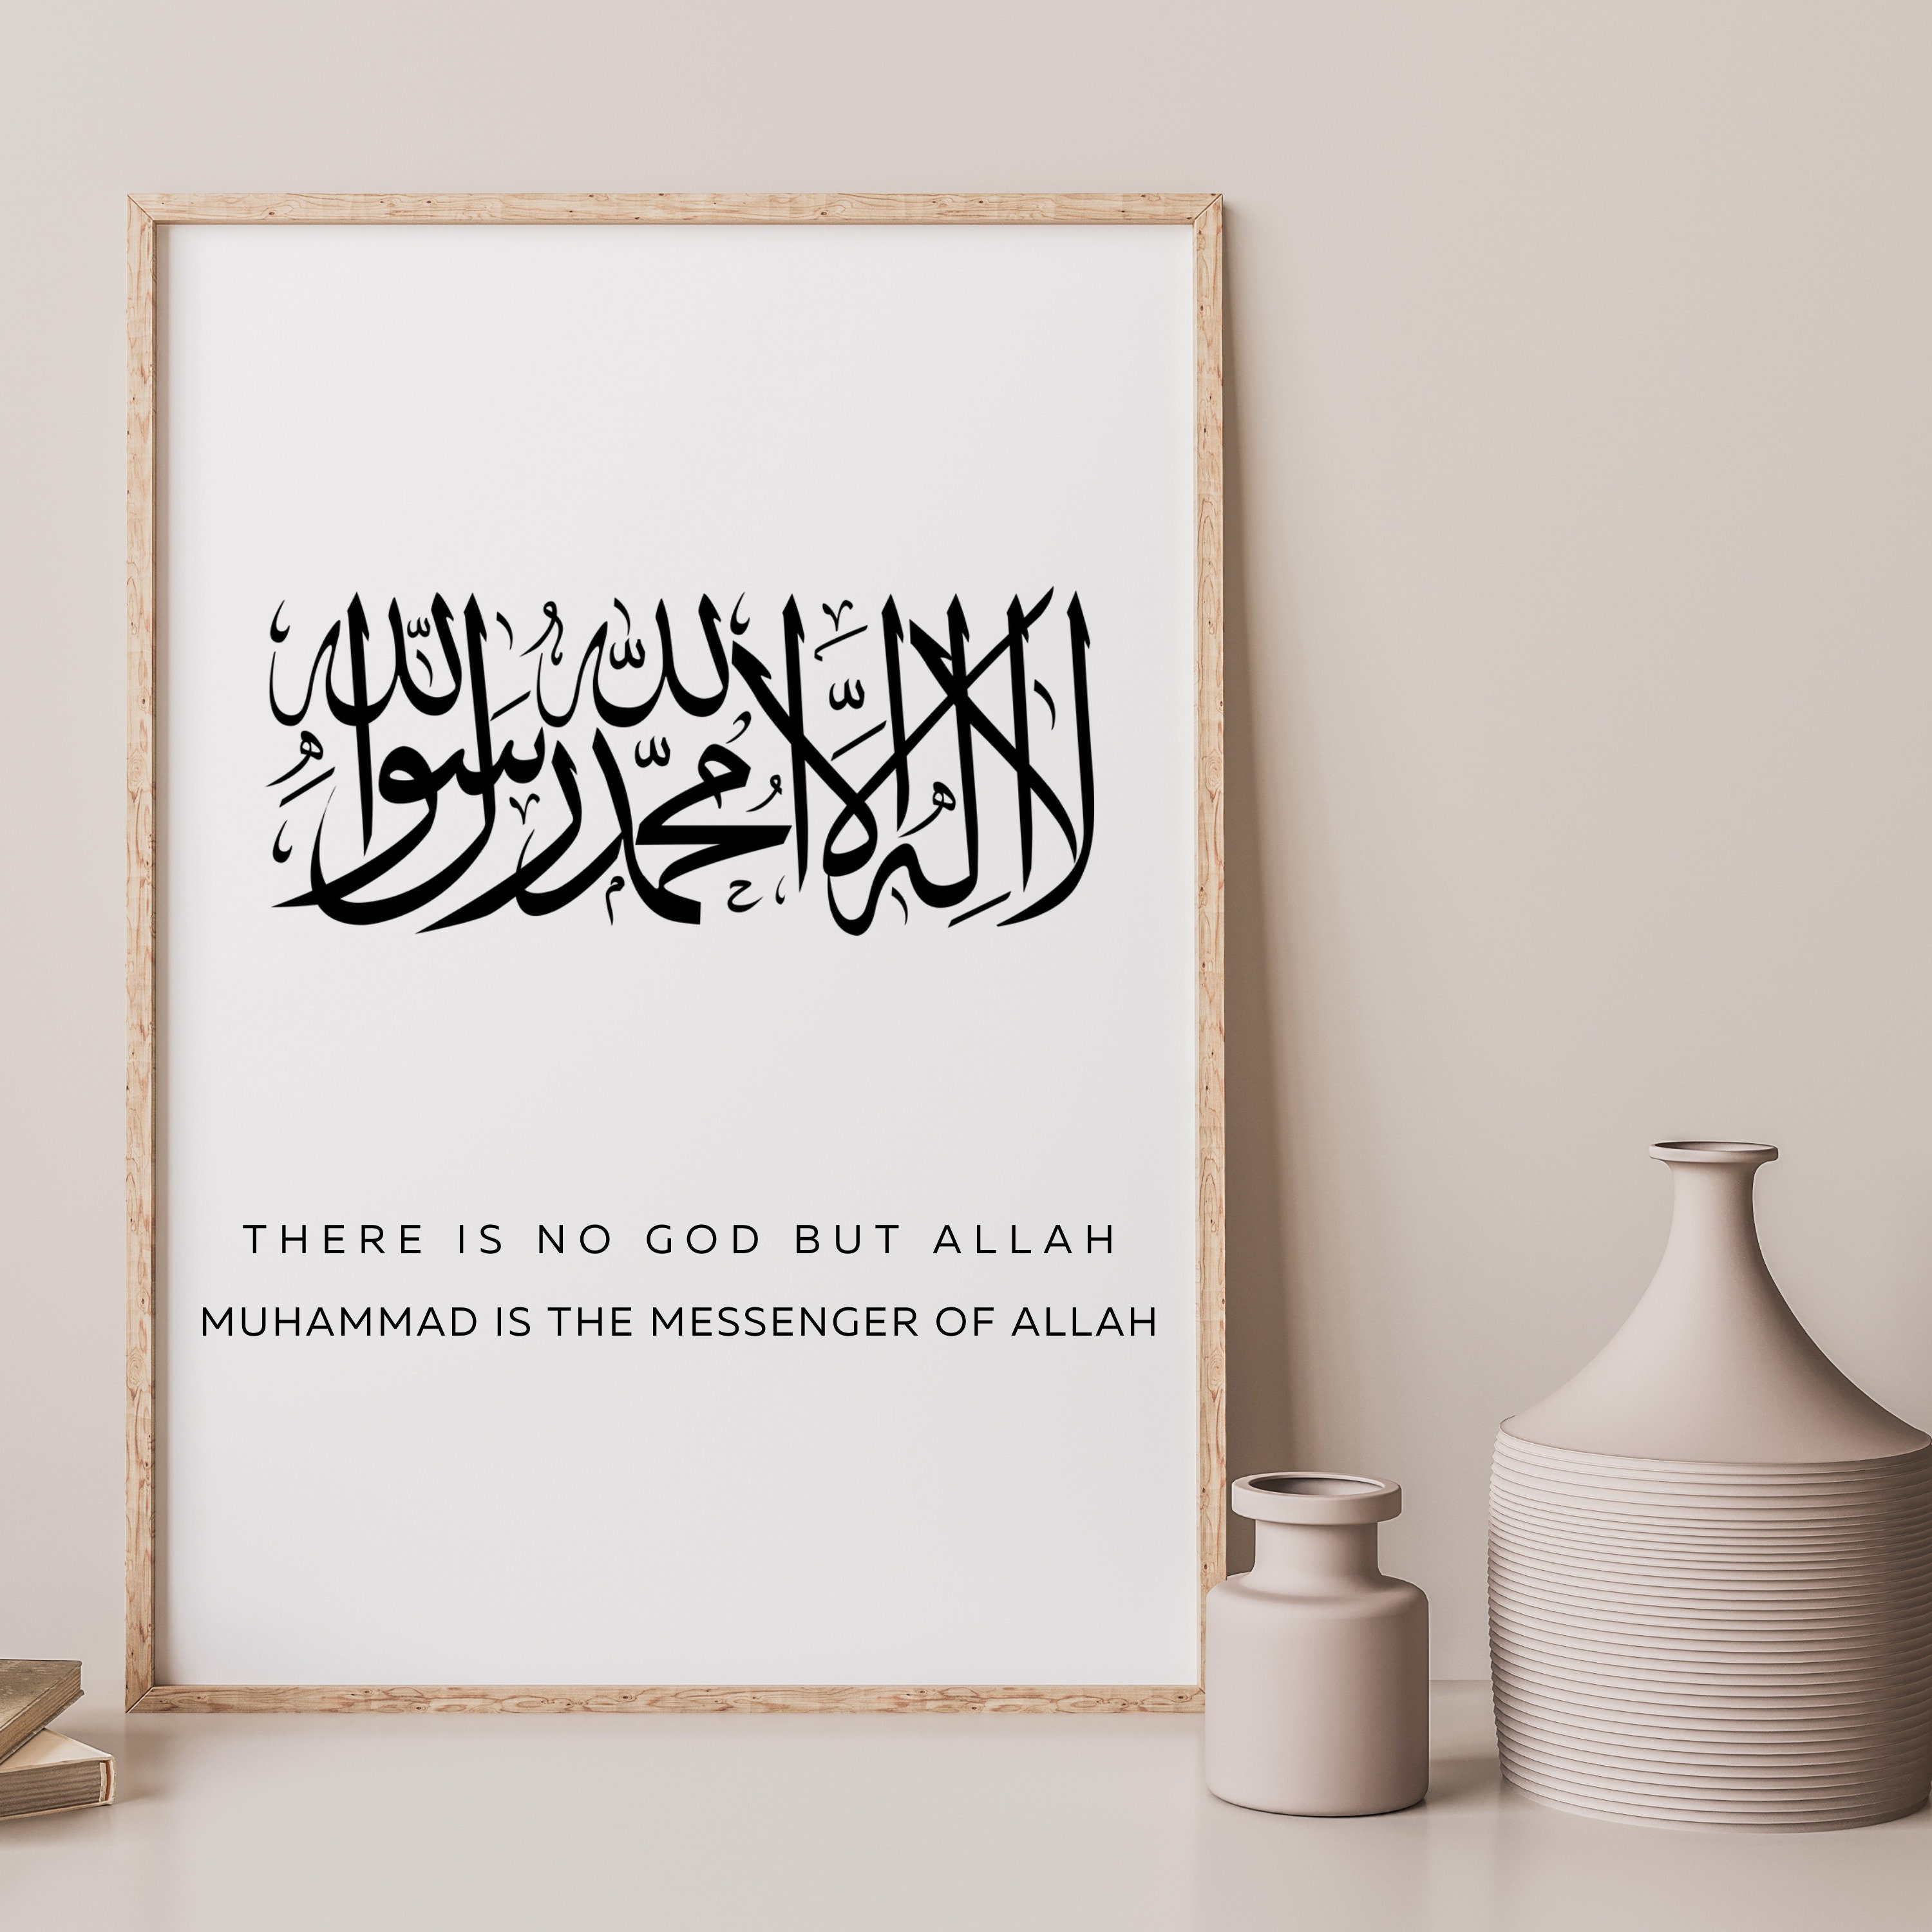 لا إله إلا الله محمد رسول الله
THERE IS NO GOD BUT ALLAH
MUHAMMAD IS THE MESSENGER OF ALLAH